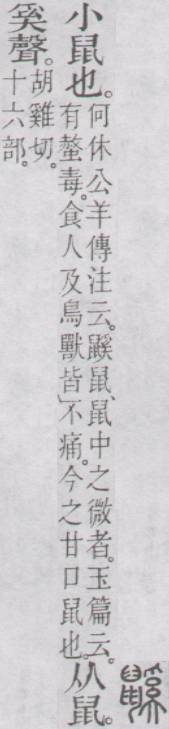 鼷
小鼠也。
何休公羊傳注云。鼷鼠、鼠中之微者。玉篇云。
有螫毒。食人及鳥獸皆」不痛。今之甘口鼠也。
从鼠。
奚聲。
胡雞切。
十六部。